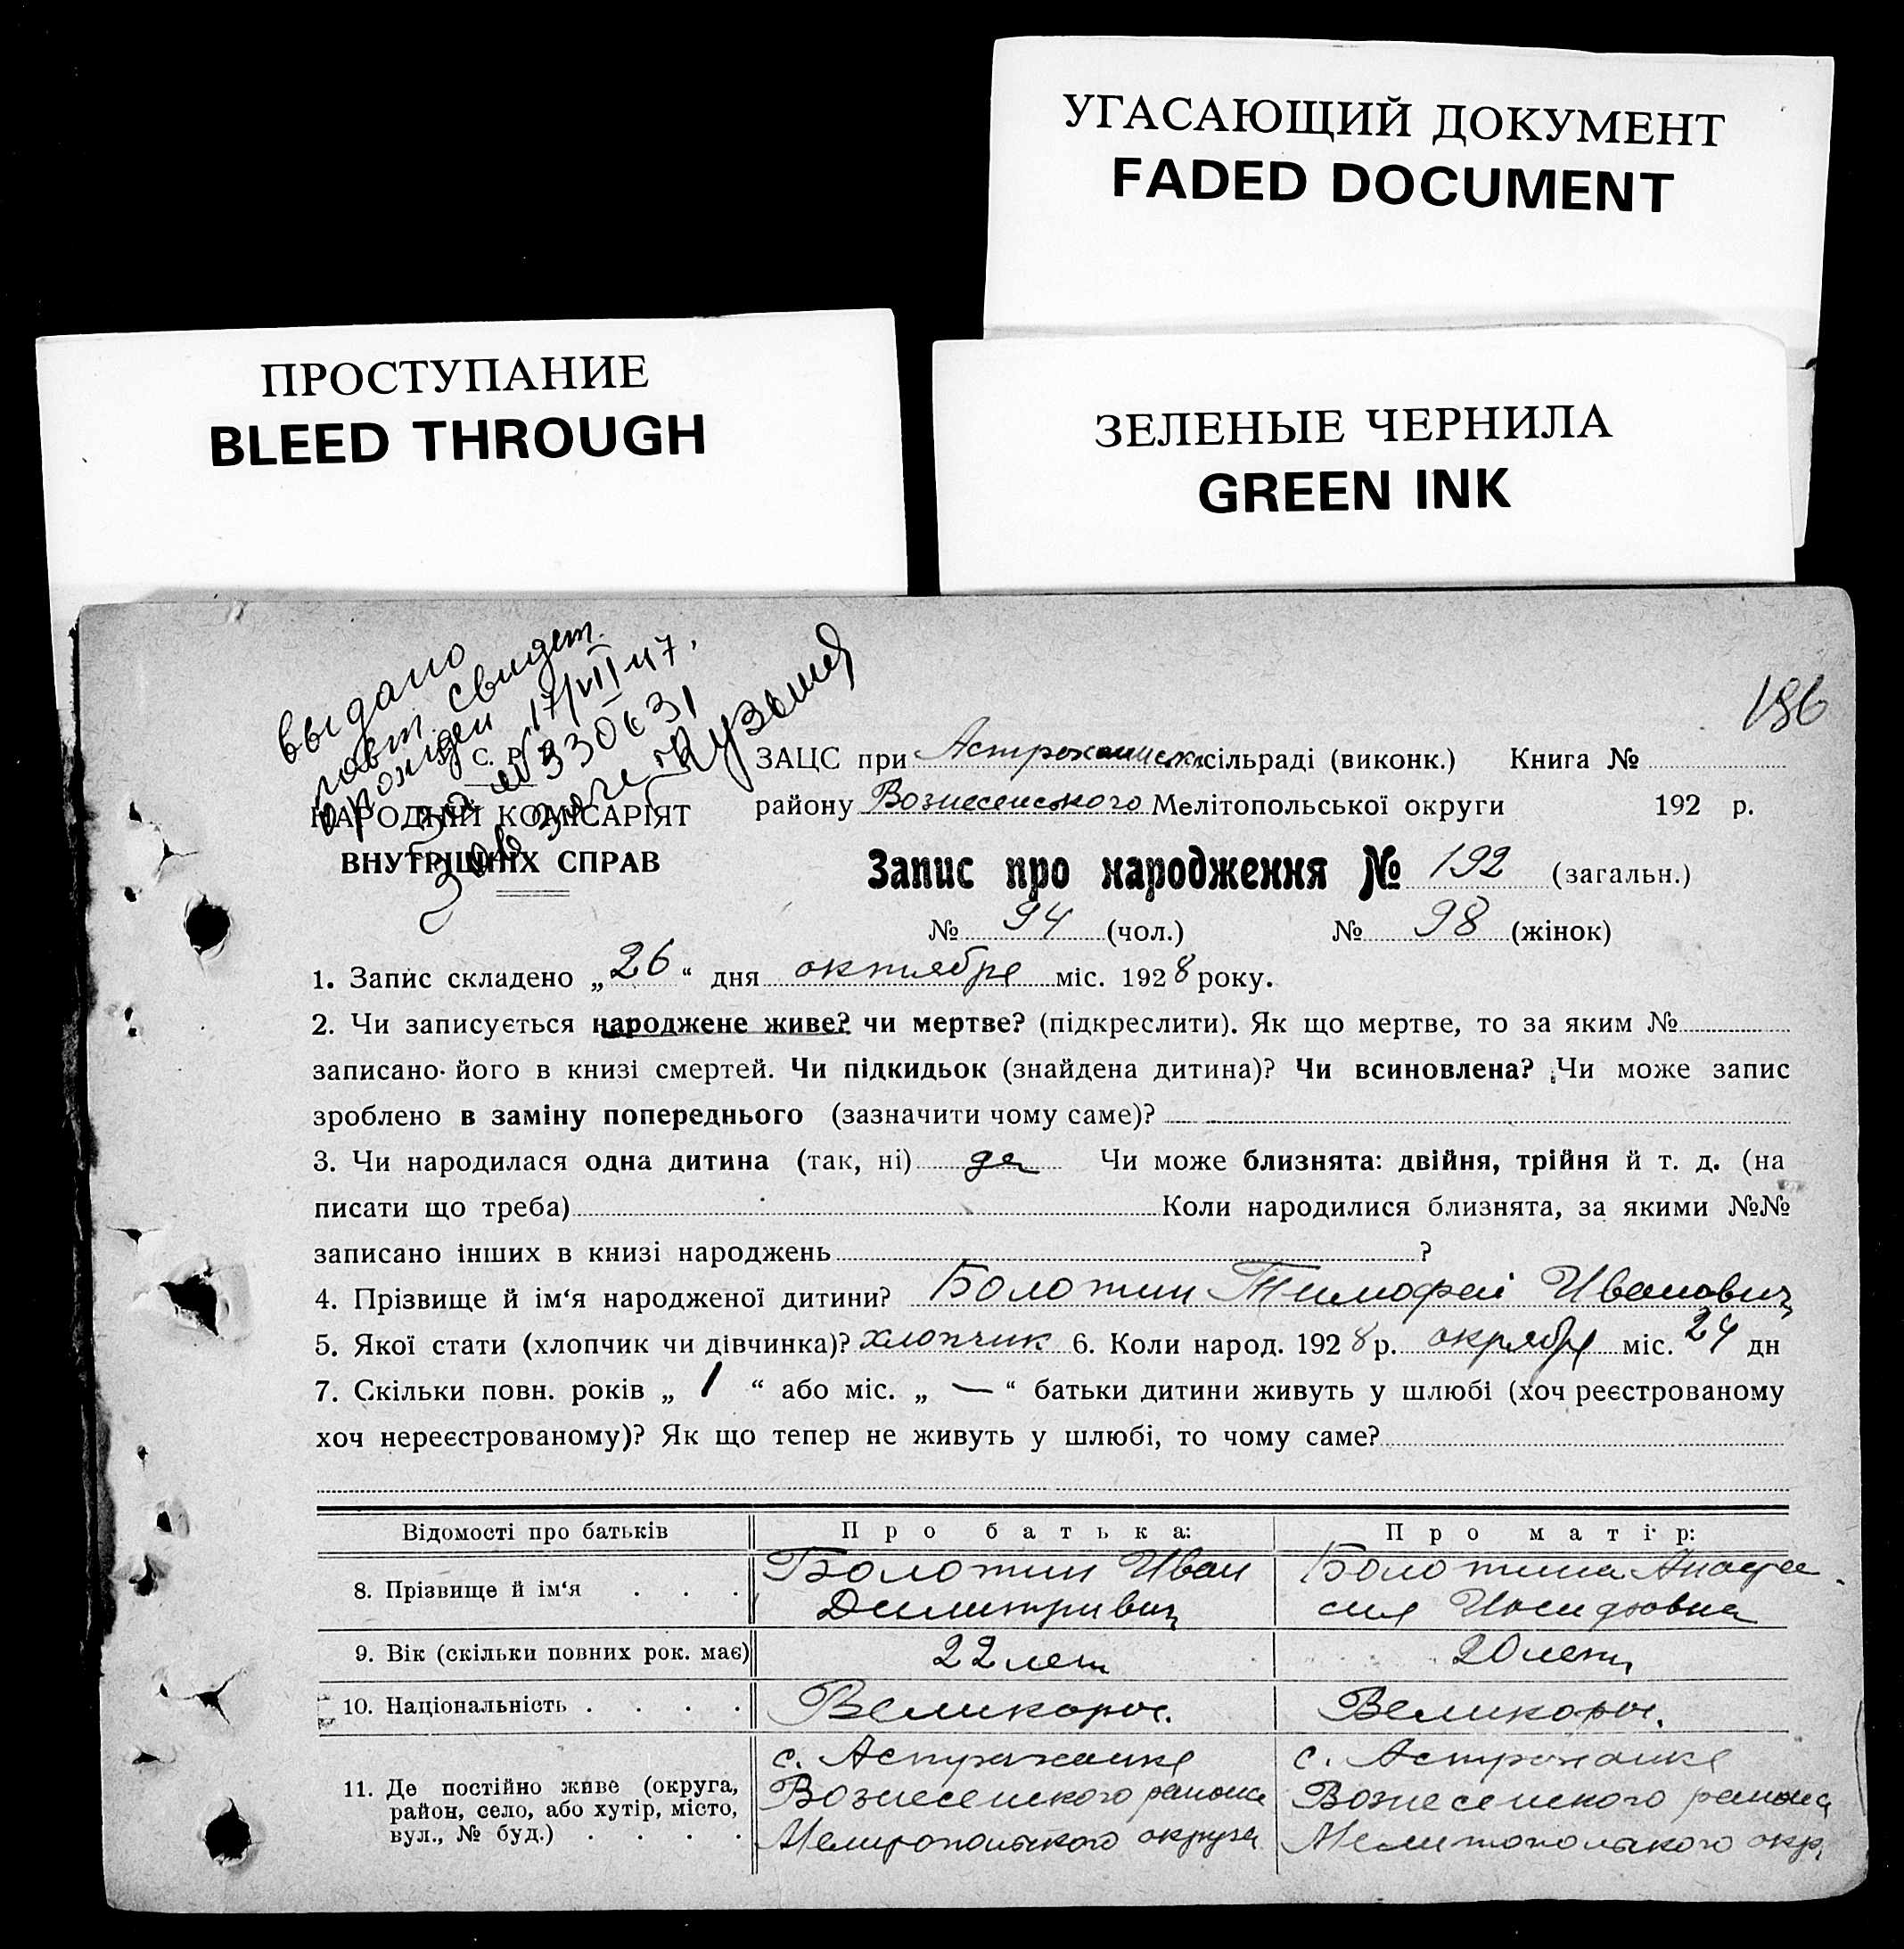 УГАСАЮЩИЙ ДОКУМЕНТ
FADED DOCUMENT
ПРОСТУПАНИЕ
BLEED THROUGH
ЗЕЛЕНЫЕ ЧЕРНИЛА
GREEN INK
186
выдано
повт. свидет.
о рожден 17/VII 47.
№ 330631
Зав загс
С.
НАРОДНІЙ КОМІСАРІЯТ
ВНУТРІШНІХ СПРАВ
ЗАЦС при Астраханськ сільраді (виконк.) Книга №
району Вознесенського Мелітопольської округи 192 р.
Запис про народження № 192 (загальн.)
№ 94 (чол.) № 98 (жінок)
1. Запис складено „26“ дня октября міс. 1928 року.
2. Чи записується народжене живе? чи мертве? (підкреслити). Як що мертве, то за яким №
записано його в книзі смертей. Чи підкидьок (знайдена дитина)? Чи всиновлена? Чи може запис
зроблено в заміну попереднього (зазначити чому саме)?
3. Чи народилася одна дитина (так, ні) да Чи може близнята: двійня, трійня й т. д. (на
писати що треба) Коли народилися близнята, за якими №№
записано інших в книзі народжень ?
4. Прізвище й ім‘я народженої дитини? Болотин Тимофей Иванович
5. Якої стати (хлопчик чи дівчинка)? хлопчик 6. Коли народ. 1928 р. октября міс. 24 дн
7. Скільки повн. років „ 1 “ або міс. „ — “ батьки дитини живуть у шлюбі (хоч реєстрованому
хоч нереєстрованому)? Як що тепер не живуть у шлюбі, то чому саме?
Відомості про батьків Про батька: Про матір:
8. Прізвище й ім‘я . . . Болотин Иван Болотина Анаста
Димитривич сия
9. Вік (скільки повних рок. має) 22 лет 20 лет
10. Національність . . . . Великорос. Великорос.
11. Де постійно живе (округа, с. Астраханка с. Астраханка
район, село, або хутір, місто, Вознесенского района Вознесенского района
вул., № буд.) . . . . Мелитопольского округа Мелитопольского окр.